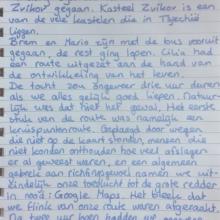 Zvíkov gegaan. Kasteel Zvíkov is een
van de vele kastelen die in Tsjechië
liggen.
Bram en Mario zijn met de bus vooruit
gegaan, de rest ging lopen. Cilia had
een route uitgezet aan de hand van
de ontwikkeling van het leven.
De tocht zou ongeveer drie uur duren
als we alles gelijk goed liepen. Natuur-
lijk was dat niet het geval. Het eerste
stuk van de route was namelijk een
kruispuntenroute. Geplaagd door wegen
die niet op de kaart stonden, mensen die
niet konden onthouden hoe veel afslagen
er al geweest waren, en een algemeen
gebrek aan richtingsgevoel namen we uit-
eindelijk onze toevlucht tot de grote redder
in nood: Google Maps. Het bleek dat
we flink van onze route waren afgeraakt.
Na twee uur